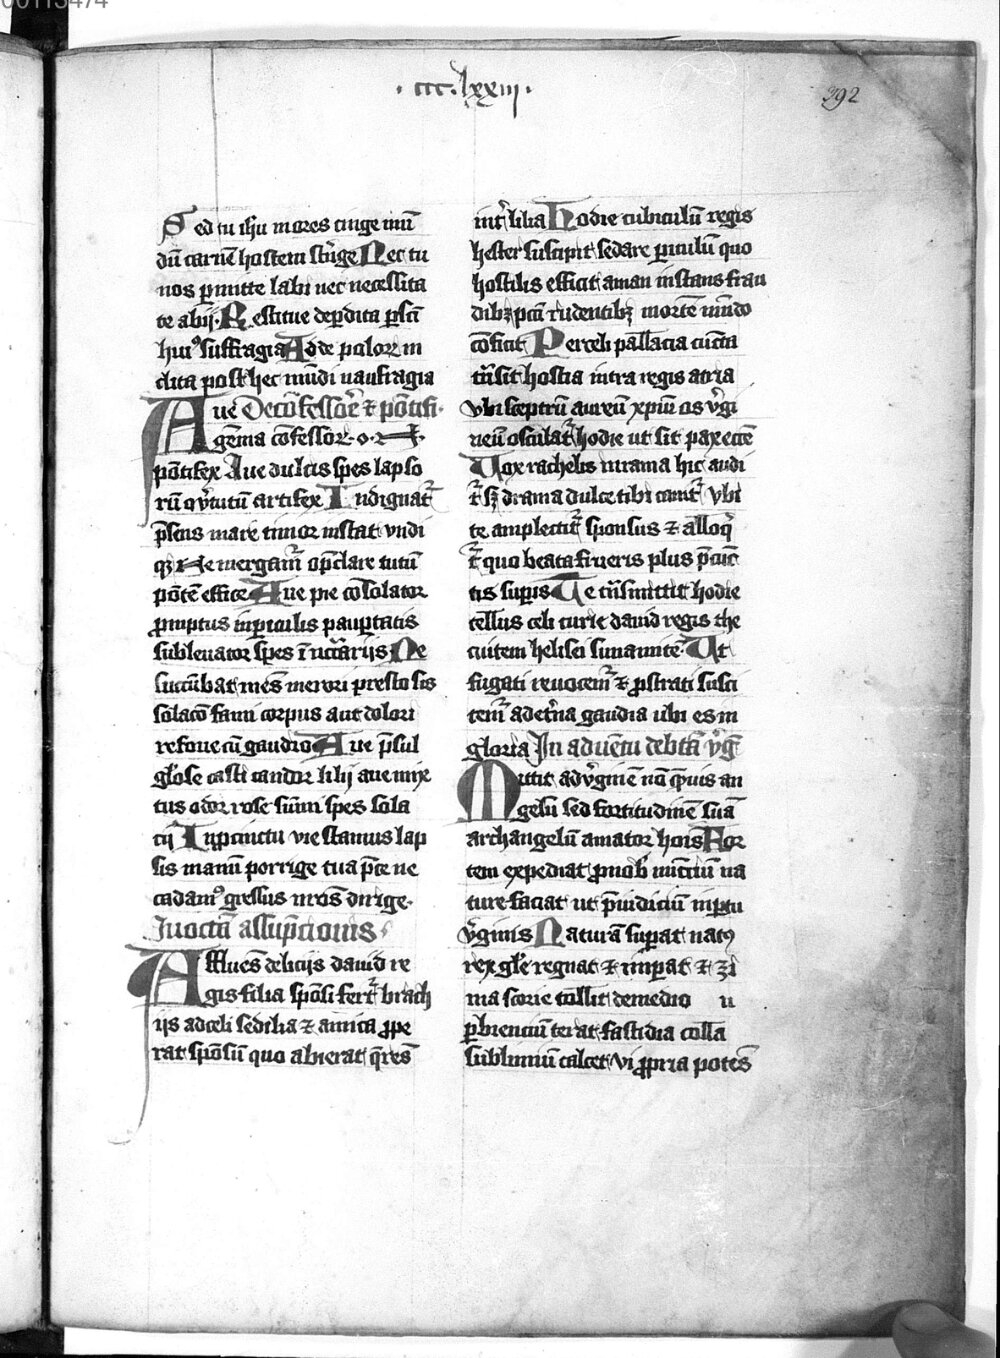 00113474
· ccc·lxxiij ·
392
Sed tu ihu mores cinge mū
dū carnē hostem st̄nge Nec tu
nos ꝑmitte labi nec necessita
te abij· Restitue deꝑdita ꝑ sc̄i
huiꝰ suffragia Adde polorꝝ in
clita post hec mūdi naufragia
Aue De cōfessor̄e ⁊ pōtifi·
gēma cōfessorꝝ· o· N·
pōtifex Aue dulcis spes lapso
rū ꝟtutū artifex Indignat᷑
p̄sens mare timor instat vndi
qꝫ Ne mergam᷑ op̄clare tutū
potē effice Aue pie cōsolator
ꝓmptus in ꝑiculis pauꝑtatis
subleuator spes ī nuc̄car̄ijs Ne
succūbat mēs merori presto sis
solacō fami corpus aut dolori
refoue cū gaudio Aue p̄sul
glōse casti candor lilij aue mix
tus odor rose sūmi spes sola
cij In pūnctu vie stamus lap
sis manū porrige tua p̄ce ne
cadamꝰ gressus nr̄os dirige·
In octā assūpcionis
Afflues delicijs dauid re
gis filia spōsi fert᷑ brach
ijs ad celi sedilia ⁊ amica ꝓpe
rat spōsū quo abierat q̄res
int᷑ lilia Hodie cubiculū regis
hester suscipit sedare ꝑiculū quo
hostilis efficit aman instans frau
dibꝫ pccā rudentibꝫ mortē mūdo
cōficit Per celi pallacia cūcta
trāsit hostia intra regis atria
vbi sceptrū aureū xpm̄ os ꝟgi
neū osculat᷑ hodie ut sit pax ecc̄e
Vox rachelis in rama hic audi
t᷑ sꝫ drama dulce tibi canit᷑ vbi
te amplectit᷑ sponsus ⁊ alloqͥ
t᷑ quo beata frueris plus p̄ cūc
tis suꝑis Te trāsmittit hodie
tellus celi curie dauid regis the
cuitem helisei sunamite· Ut
fugati reuocem᷑ ⁊ ꝓstrati susci
tem᷑ ad et̄na gaudia ubi es in
gloria In aduētu de btā ꝟg̅
Mittit ad ꝟginē nō q̄muis an
gelū sed fortitudinē suā
archangelū amator hoīs For
tem expediat ꝓ nob̄ nūctiū na
ture faciat ut p̄iudiciū in ꝑtu
ꝟginis Naturā suꝑat natꝰ
rex glē regnat ⁊ imꝑat ⁊ zi
ma scorie tollit de medio u
ꝑbienciū terat fastidia colla
sublimiū calcet vi ꝓpria potēs